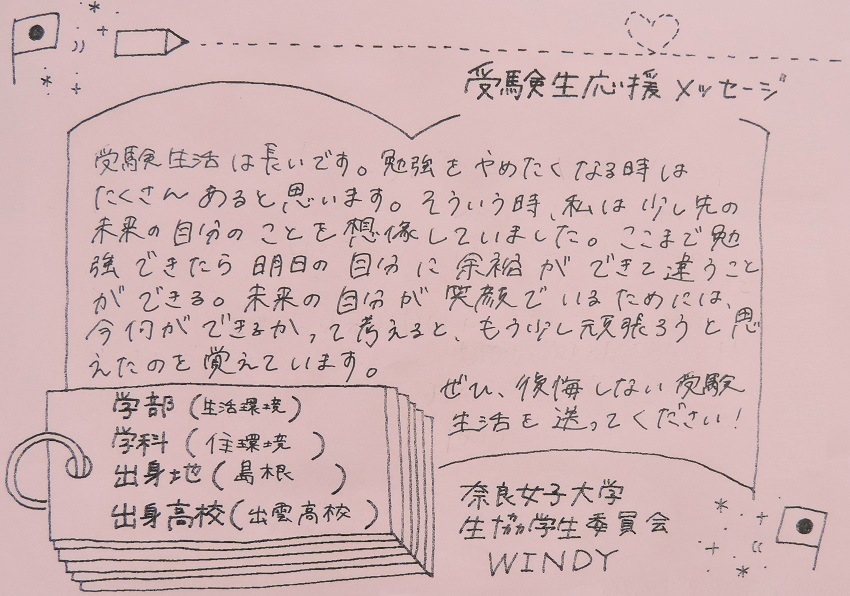 受験生応援メッセージ
受験生活は長いです。勉強をやめたくなる時は
たくさんあると思います。そういう時、私は少し先の
未来の自分のことを想像していました。ここまで勉
強できたら明日の自分に余裕ができて違うこと
ができる。未来の自分が笑顔でいるためには、
今何ができるかって考えると、もう少し頑張ろうと思
えたのを覚えています。
ぜひ、後悔しない受験
生活を送ってください!
学部(生活環境)
学科(住環境)
出身地(島根)
出身高校(出雲高校)
奈良女子大学
生協学生委員会
WINDY